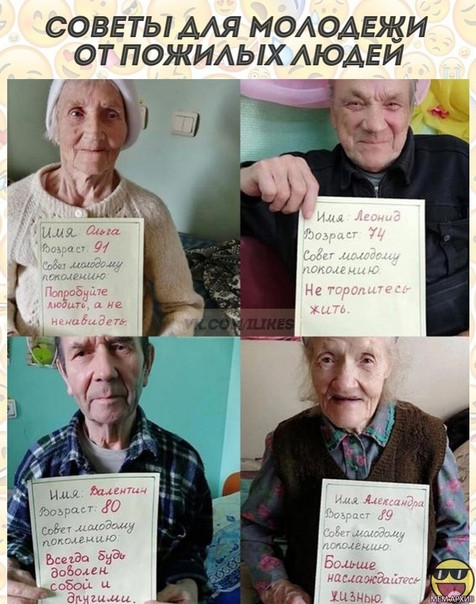 СОВЕТЫ ДЛЯ МОЛОДЕЖИ
ОТ ПОЖИЛЫХ ЛЮДЕЙ
Имя: Ольга
Возраст: 91
Совет молодому
поколению:
Попробуйте
любить, а не
ненавидеть.
Имя: Леонид
Возраст: 74
Совет молодому
поколению:
Не торопитесь
жить.
VK.COM/ILIKES
Имя: Валентин
Возраст: 80
Совет молодому
поколению:
Всегда будь
доволен
собой и
другими.
Имя: Александра
Возраст: 89
Совет молодому
поколению:
Больше
наслаждайтесь
жизнью.